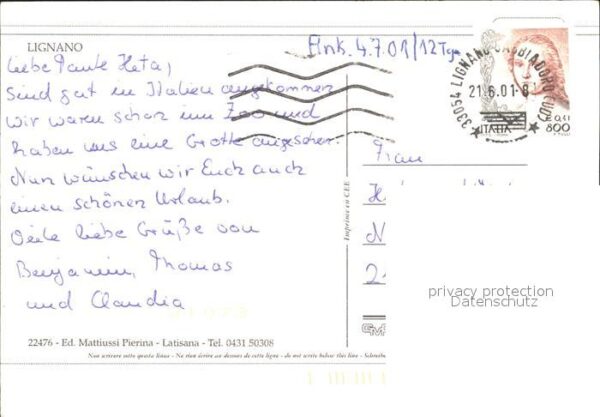 LIGNANO
Ank. 4.7.01/12 Tge
Liebe Tante Heta,
Sind gut in Italien angekommen
wir waren schon im Zoo und
haben uns eine Grotte angesehen.
Nun wünschen wir Euch auch
einen schönen Urlaub.
Viele liebe Grüße von
Benjamin, Thomas
und Claudia
33054 LIGNANO SABBIADORO (UD)
21.6.01-8
ITALIA
€ 0,41
800
Frau
H
N
2
Imprimé en CEE
privacy protection
Datenschutz
22476 - Ed. Mattiussi Pierina - Latisana - Tel. 0431 50308
Non scrivere sotto questa linea - Ne rien écrire au dessous de cette ligne - do not write below this line -